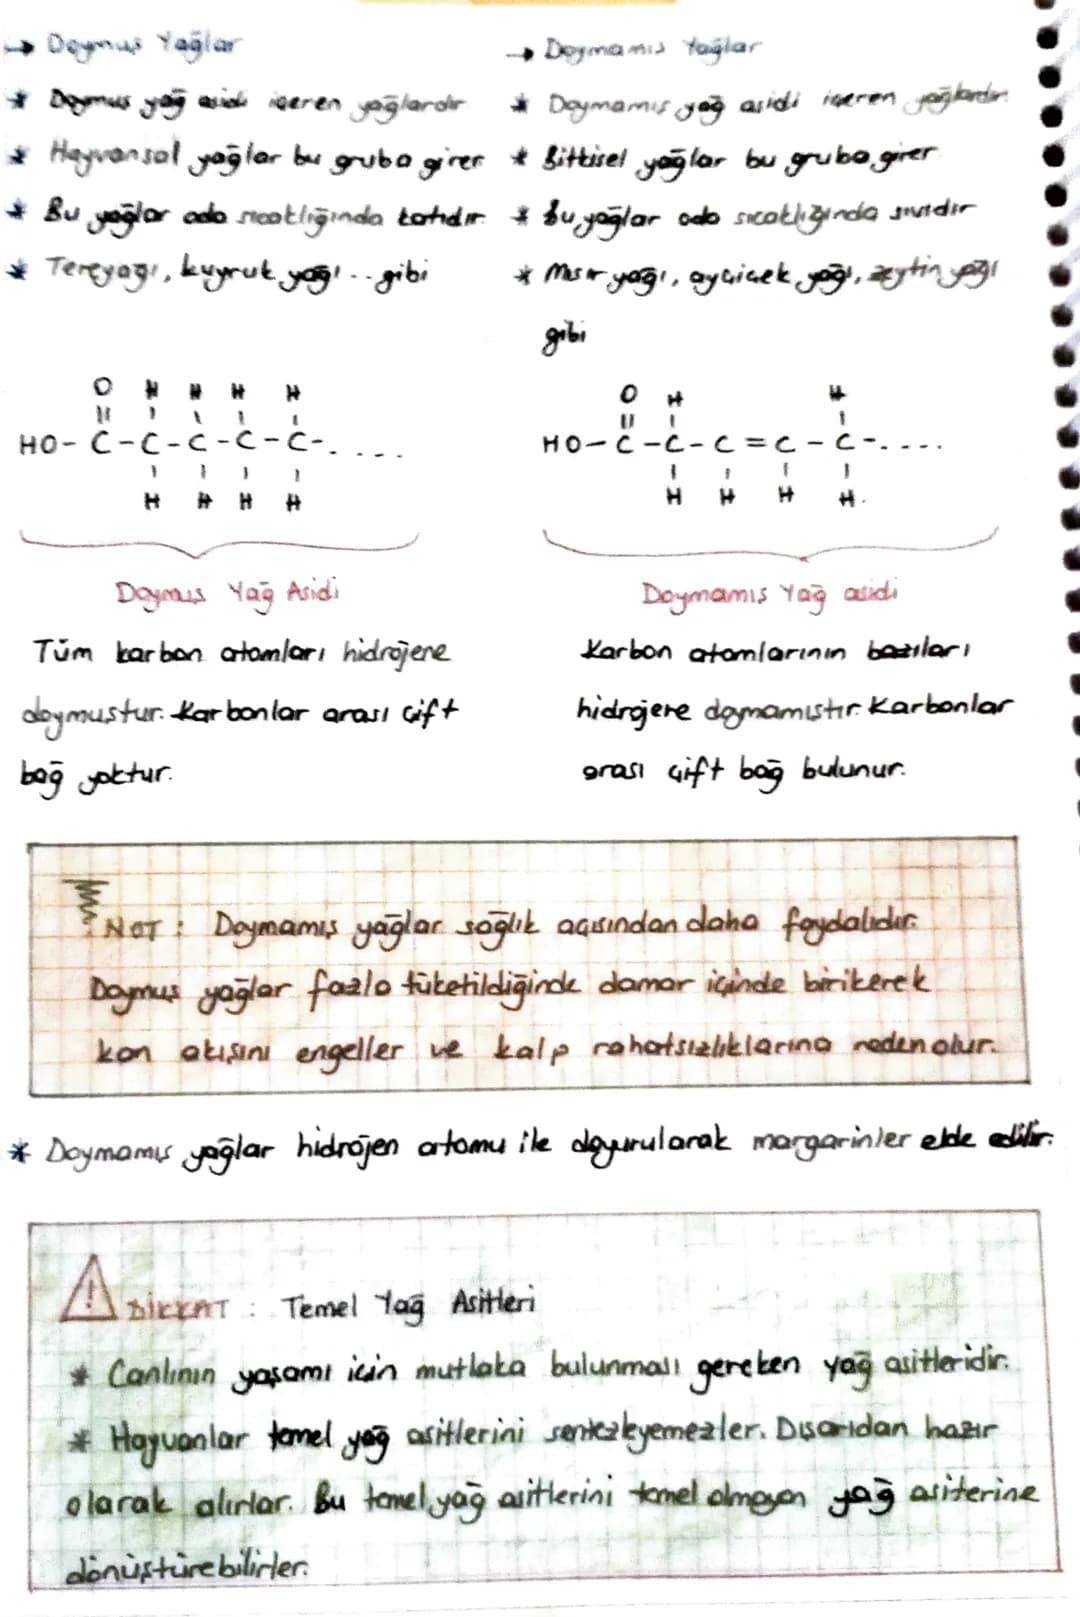 → Doymuş Yağlar
* Doymuş yağ asidi içeren yağlardır
* Hayvansal yağlar bu gruba girer
* Bu yağlar oda sıcaklığında katıdır.
* Tereyağı, kuyruk yağı... gibi
→ Doymamış Yağlar
* Doymamış yağ asidi içeren yağlardır.
* Bitkisel yağlar bu gruba girer
* Bu yağlar oda sıcaklığında sıvıdır
* Mısır yağı, ayçiçek yağı, zeytin yağı
gibi
O H H H H
HO-C-C-C-C-C-....
H H H H
Doymuş Yağ Asidi
Tüm karbon atomları hidrojene
doymuştur. Karbonlar arası çift
bağ yoktur.
O H H
HO-C-C-C=C-C-....
H H H H.
Doymamış Yağ asidi
Karbon atomlarının bazıları
hidrojene doymamıştır. Karbonlar
arası çift bağ bulunur.
NOT : Doymamış yağlar sağlık açısından daha faydalıdır.
Doymuş yağlar fazla tüketildiğinde damar içinde birikerek
kan akışını engeller ve kalp rahatsızlıklarına neden olur.
* Doymamış yağlar hidrojen atomu ile doyurularak margarinler elde edilir.
! DİKKAT : Temel Yağ Asitleri
* Canlının yaşamı için mutlaka bulunması gereken yağ asitleridir.
* Hayvanlar temel yağ asitlerini sentezleyemezler. Dışarıdan hazır
olarak alırlar. Bu temel yağ asitlerini temel olmayan yağ asiterine
dönüştürebilirler.